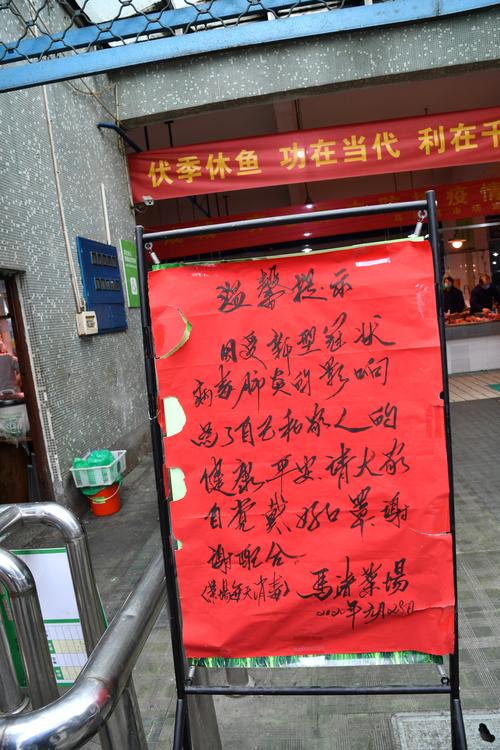 伏季休鱼 功在当代 利在千
疫情
温馨提示
因受新型冠状
病毒肺炎的影响
为了自己和家人的
健康平安.请大家
自觉戴好口罩.谢
谢配合
《菜场每天消毒》
菜场
2020年元月28日